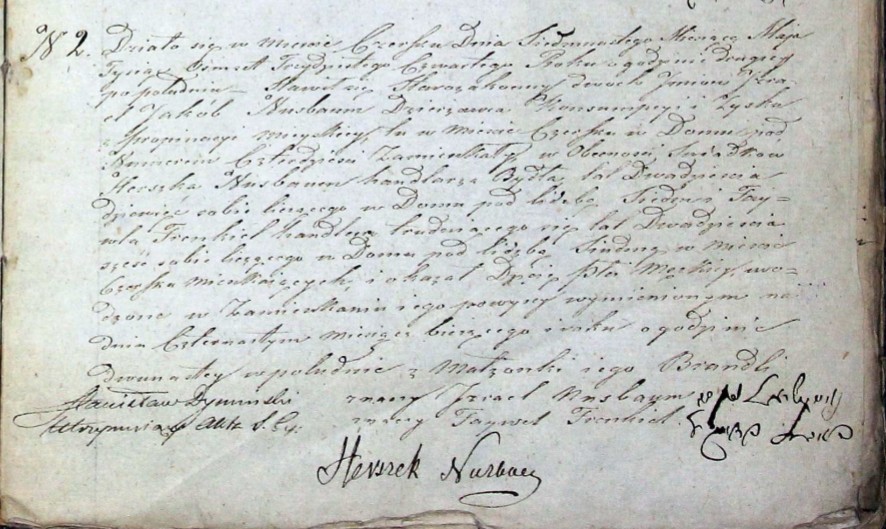 N 2. Działo się w mieście Czersku Dnia Siedemnastego Miesiąca Maja
Tysiąc Osmset Trzydziestego Czwartego Roku o godzinie drugiey
po południu – Stawił się Starozakonny dwoch Imion Izra-
el Jakób Nusbaum Dzierżawca Konsumpcyi i Zysku
z Propinacyi mieyskiey, tu w mieście Czersku w Domu pod
Numerem Czterdziestu Zamieszkały, w Obecności Świadków
Herszka Nusbaum handlarza Bydła lat Dwadzieścia
dziewięć sobie liczącego w Domu pod liczbą Siedm i Fay-
wla Frenkiel handlem trudniącego się lat Dwadzieścia
sześć sobie liczącego w Domu pod liczbą Siedmą w mieście
Czersku mieszkaiących i okazał Dziecię płci Męskiey, uro-
dzone w Zamieszkaniu iego powyżey wymienionym na
dniu Czternastym miesiąca bieżącego i roku o godzinie
dwunastey w południe z Małżonki iego Brandli
Stanisław Dymiński
Utrzymuiący Akta S. Cy:
znaczy Izrael Nusbaum
znaczy Faywel Frenkiel
Herszek Nuzbaum